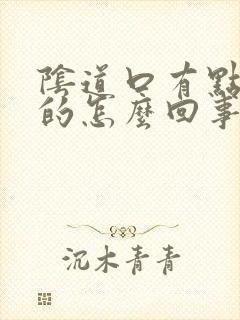 陰道口有點
的怎麼回事
沉木青青